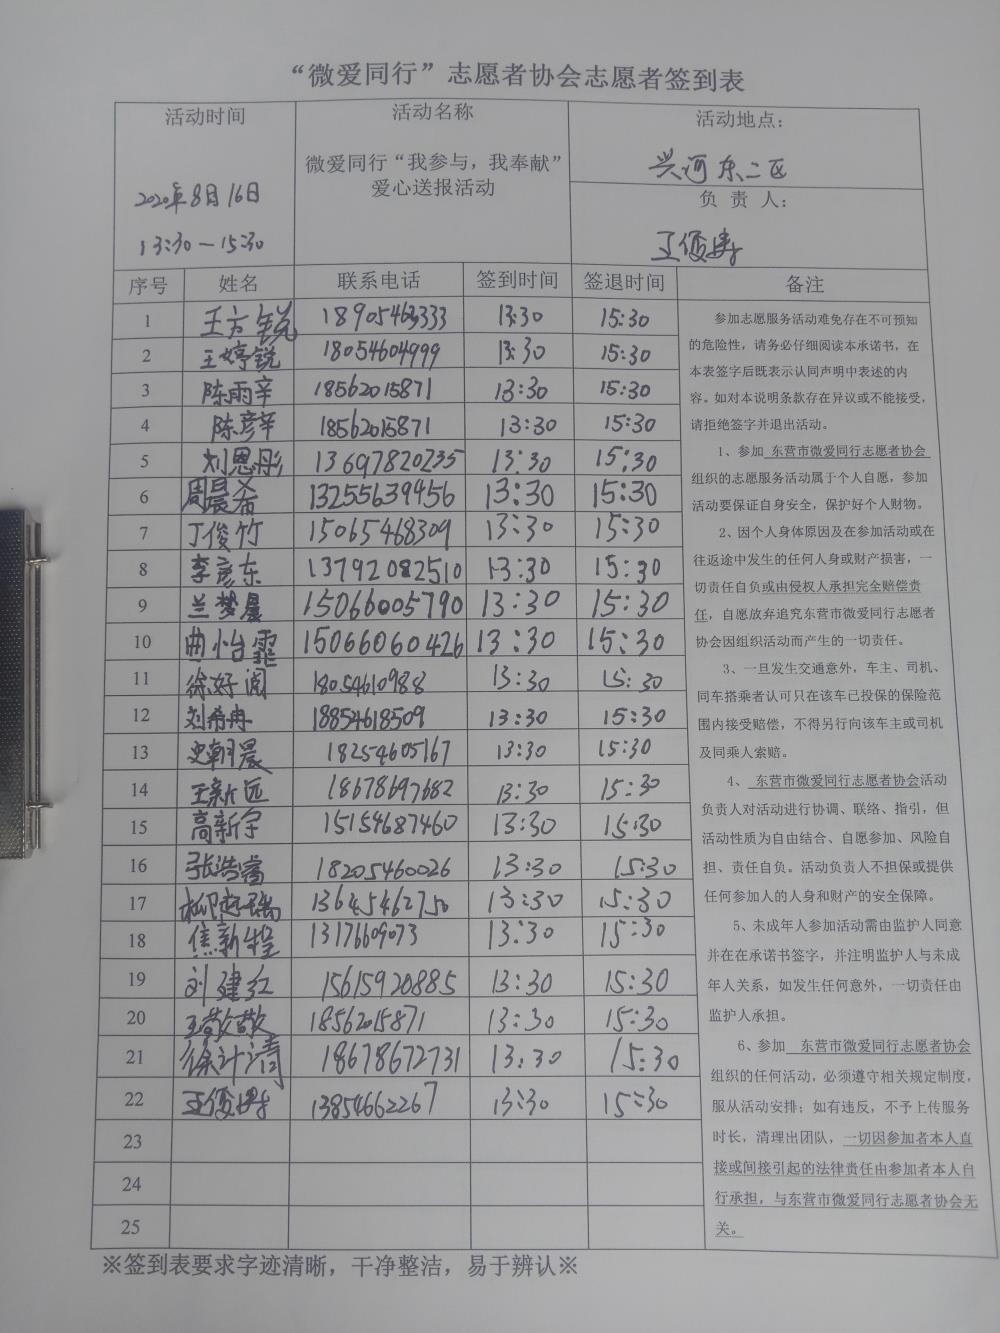 “微爱同行”志愿者协会志愿者签到表
活动时间
2020年8月16日
13:30—15:30
活动名称
微爱同行“我参与，我奉献”
爱心送报活动
活动地点：
兴河东二区
负 责 人：
序号 姓名 联系电话 签到时间 签退时间 备注
1 王方锐 18905463333 13:30 15:30
2 王婷锐 18054604999 13:30 15:30
3 陈雨辛 18562015871 13:30 15:30
4 陈彦辛 18562015871 13:30 15:30
5 刘恩彤 13697820235 13:30 15:30
6 周晨希 13255639456 13:30 15:30
7 丁俊竹 15065468309 13:30 15:30
8 李彦东 13792082510 13:30 15:30
9 兰梦晨 15066005790 13:30 15:30
10 曲怡霏 15066060426 13:30 15:30
11 徐好阅 18054610988 13:30 15:30
12 刘希冉 18854618509 13:30 15:30
13 史朝晨 18254605167 13:30 15:30
14 王新远 18678697682 13:30 15:30
15 高新宇 15154687460 13:30 15:30
16 张浩睿 18205460026 13:30 15:30
17 13645462750 13:30 15:30
18 焦新程 13176609073 13:30 15:30
19 刘建红 15615920885 13:30 15:30
20 王敬敬 18562015871 13:30 15:30
21 徐计清 18678672731 13:30 15:30
22 13854662267 13:30 15:30
23
24
25
参加志愿服务活动难免存在不可预知
的危险性，请务必仔细阅读本承诺书，在
本表签字后既表示认同声明中表述的内
容。如对本说明条款存在异议或不能接受，
请拒绝签字并退出活动。
1、参加 东营市微爱同行志愿者协会
组织的志愿服务活动属于个人自愿，参加
活动要保证自身安全，保护好个人财物。
2、因个人身体原因及在参加活动或在
往返途中发生的任何人身或财产损害，一
切责任自负或由侵权人承担完全赔偿责
任，自愿放弃追究东营市微爱同行志愿者
协会因组织活动而产生的一切责任。
3、一旦发生交通意外，车主、司机、
同车搭乘者认可只在该车已投保的保险范
围内接受赔偿，不得另行向该车主或司机
及同乘人索赔。
4、 东营市微爱同行志愿者协会活动
负责人对活动进行协调、联络、指引，但
活动性质为自由结合、自愿参加、风险自
担、责任自负。活动负责人不担保或提供
任何参加人的人身和财产的安全保障。
5、未成年人参加活动需由监护人同意
并在在承诺书签字，并注明监护人与未成
年人关系，如发生任何意外，一切责任由
监护人承担。
6、参加 东营市微爱同行志愿者协会
组织的任何活动，必须遵守相关规定制度，
服从活动安排；如有违反，不予上传服务
时长，清理出团队，一切因参加者本人直
接或间接引起的法律责任由参加者本人自
行承担，与东营市微爱同行志愿者协会无
关。
※签到表要求字迹清晰，干净整洁，易于辨认※